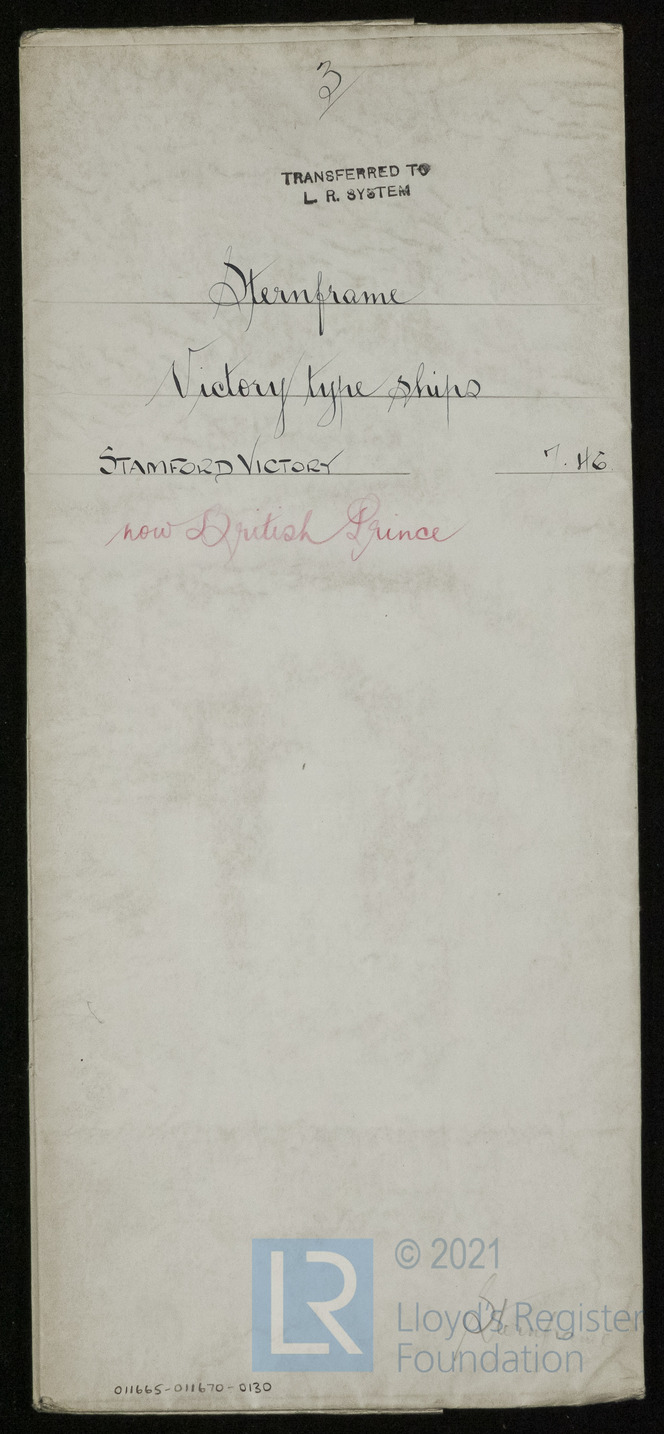 3
TRANSFERRED TO
L. R. SYSTEM
Sternframe
Victory type ships
STAMFORD VICTORY 7.46
now British Prince
LR
© 2021
Lloyd's Register
Foundation
011665-011670-0130